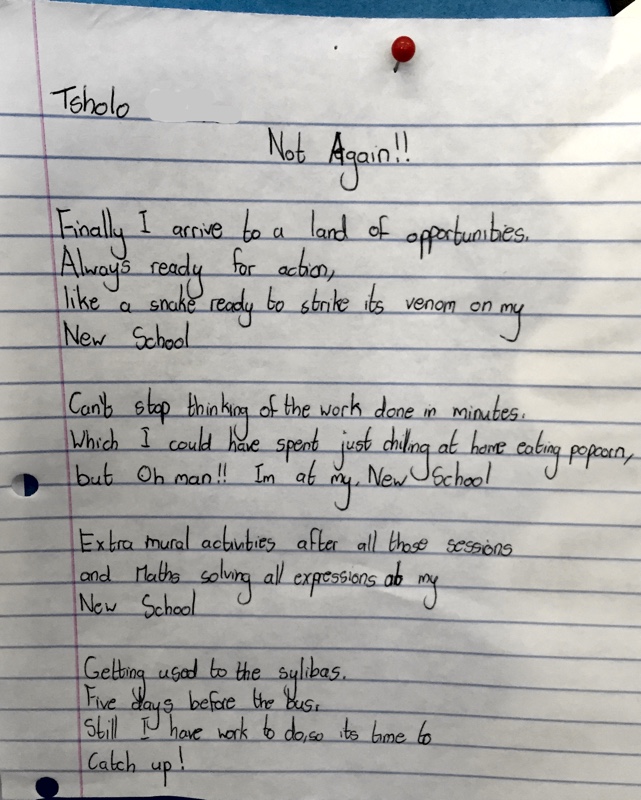 Tsholo
Not Again!!
Finally I arrive to a land of opportunities.
Always ready for action,
like a snake ready to strike its venom on my
New School
Can't stop thinking of the work done in minutes.
Which I could have spent just chilling at home eating popcorn,
but Oh man!! Im at my New School
Extra mural activities after all those sessions
and Maths solving all expressions at my
New School
Getting used to the sylibas.
Five days before the bus.
Still I have work to do,so its time to
Catch up!